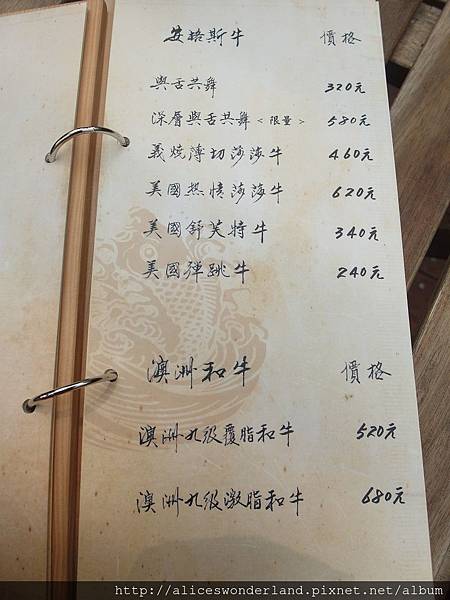 安格斯牛 價格
與舌共舞 320元
深層與舌共舞<限量> 580元
義燒薄切莎莎牛 460元
美國熱情莎莎牛 620元
美國舒芙特牛 340元
美國彈跳牛 240元
澳洲和牛 價格
澳洲九級覆脂和牛 520元
澳洲九級激脂和牛 680元
http://aliceswonderland.pixnet.net/album